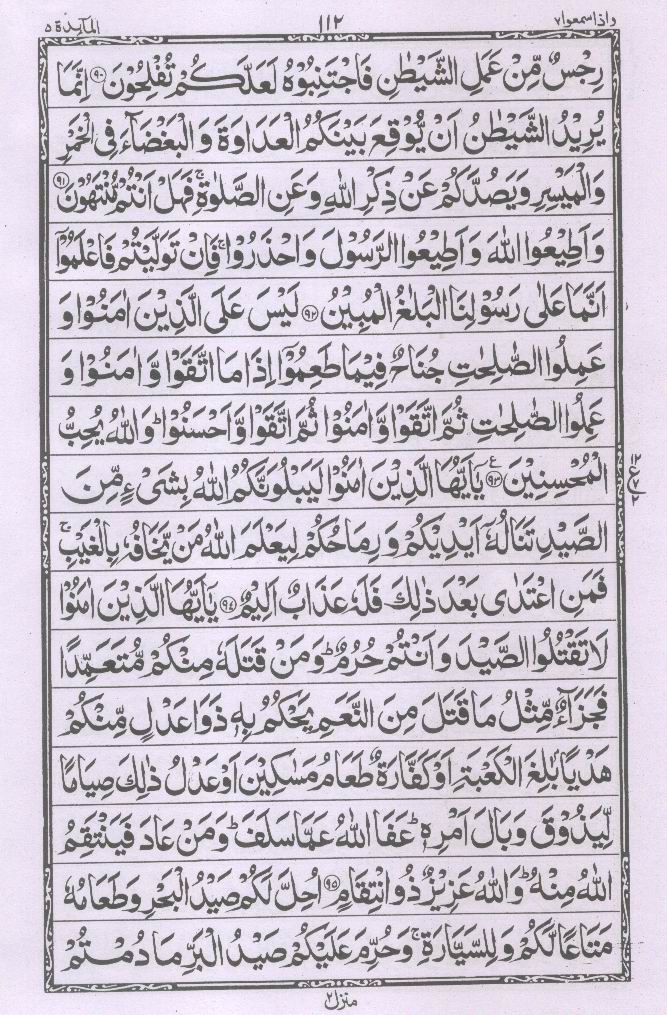 واذا سمعوا ٧ ١١٢ المآىِٕدة ٥
رِجْسٌ مِّنْ عَمَلِ الشَّيْطٰنِ فَاجْتَنِبُوْهُ لَعَلَّكُمْ تُفْلِحُوْنَ ۹۰ اِنَّمَا
يُرِيْدُ الشَّيْطٰنُ اَنْ يُّوْقِعَ بَيْنَكُمُ الْعَدَاوَةَ وَ الْبَغْضَآءَ فِى الْخَمْرِ
وَالْمَيْسِرِ وَيَصُدَّكُمْ عَنْ ذِكْرِ اللّٰهِ وَعَنِ الصَّلٰوةِ ۚ فَهَلْ اَنْتُمْ مُّنْتَهُوْنَ ۹۱
وَ اَطِيْعُوا اللّٰهَ وَ اَطِيْعُوا الرَّسُوْلَ وَ احْذَرُوْا ۚ فَاِنْ تَوَلَّيْتُمْ فَاعْلَمُوْۤا
اَنَّمَا عَلٰى رَسُوْلِنَا الْبَلٰغُ الْمُبِيْنُ ۹۲ لَيْسَ عَلَى الَّذِيْنَ اٰمَنُوْا وَ
عَمِلُوا الصّٰلِحٰتِ جُنَاحٌ فِيْمَا طَعِمُوْۤا اِذَا مَا اتَّقَوْا وَّ اٰمَنُوْا وَ
عَمِلُوا الصّٰلِحٰتِ ثُمَّ اتَّقَوْا وَّ اٰمَنُوْا ثُمَّ اتَّقَوْا وَّ اَحْسَنُوْا ؕ وَ اللّٰهُ يُحِبُّ
الْمُحْسِنِيْنَ ۹۳ ع يٰۤاَيُّهَا الَّذِيْنَ اٰمَنُوْا لَيَبْلُوَنَّكُمُ اللّٰهُ بِشَىْءٍ مِّنَ
الصَّيْدِ تَنَالُهٗۤ اَيْدِيْكُمْ وَ رِمَاحُكُمْ لِيَعْلَمَ اللّٰهُ مَنْ يَّخَافُهٗ بِالْغَيْبِ ۚ
فَمَنِ اعْتَدٰى بَعْدَ ذٰلِكَ فَلَهٗ عَذَابٌ اَلِيْمٌ ۹۴ يٰۤاَيُّهَا الَّذِيْنَ اٰمَنُوْا
لَا تَقْتُلُوا الصَّيْدَ وَ اَنْتُمْ حُرُمٌ ؕ وَ مَنْ قَتَلَهٗ مِنْكُمْ مُّتَعَمِّدًا
فَجَزَآءٌ مِّثْلُ مَا قَتَلَ مِنَ النَّعَمِ يَحْكُمُ بِهٖ ذَوَا عَدْلٍ مِّنْكُمْ
هَدْيًۢا بٰلِغَ الْكَعْبَةِ اَوْ كَفَّارَةٌ طَعَامُ مَسٰكِيْنَ اَوْ عَدْلُ ذٰلِكَ صِيَامًا
لِّيَذُوْقَ وَبَالَ اَمْرِهٖ ؕ عَفَا اللّٰهُ عَمَّا سَلَفَ ؕ وَ مَنْ عَادَ فَيَنْتَقِمُ
اللّٰهُ مِنْهُ ؕ وَ اللّٰهُ عَزِيْزٌ ذُو انْتِقَامٍ ۹۵ اُحِلَّ لَكُمْ صَيْدُ الْبَحْرِ وَ طَعَامُهٗ
مَتَاعًا لَّكُمْ وَ لِلسَّيَّارَةِ ۚ وَ حُرِّمَ عَلَيْكُمْ صَيْدُ الْبَرِّ مَا دُمْتُمْ
منزل ٢